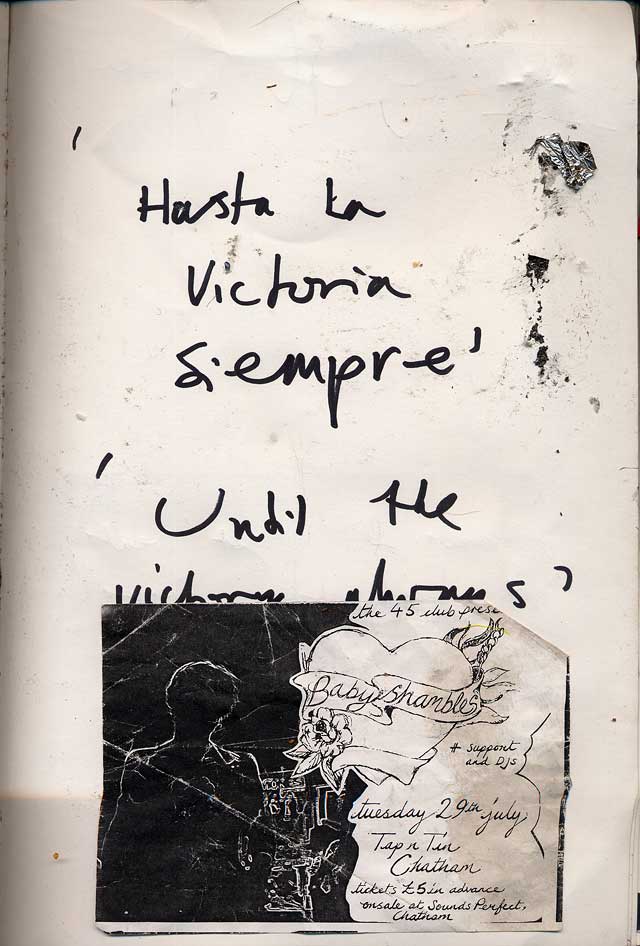 'Hasta la
Victoria
Siempre'
'Until the
victory always'
the 45 club prese
Babyshambles
# support
and DJs
tuesday 29th july
Tap n Tin
Chatham
tickets £5 in advance
onsale at Sounds Perfect,
Chatham